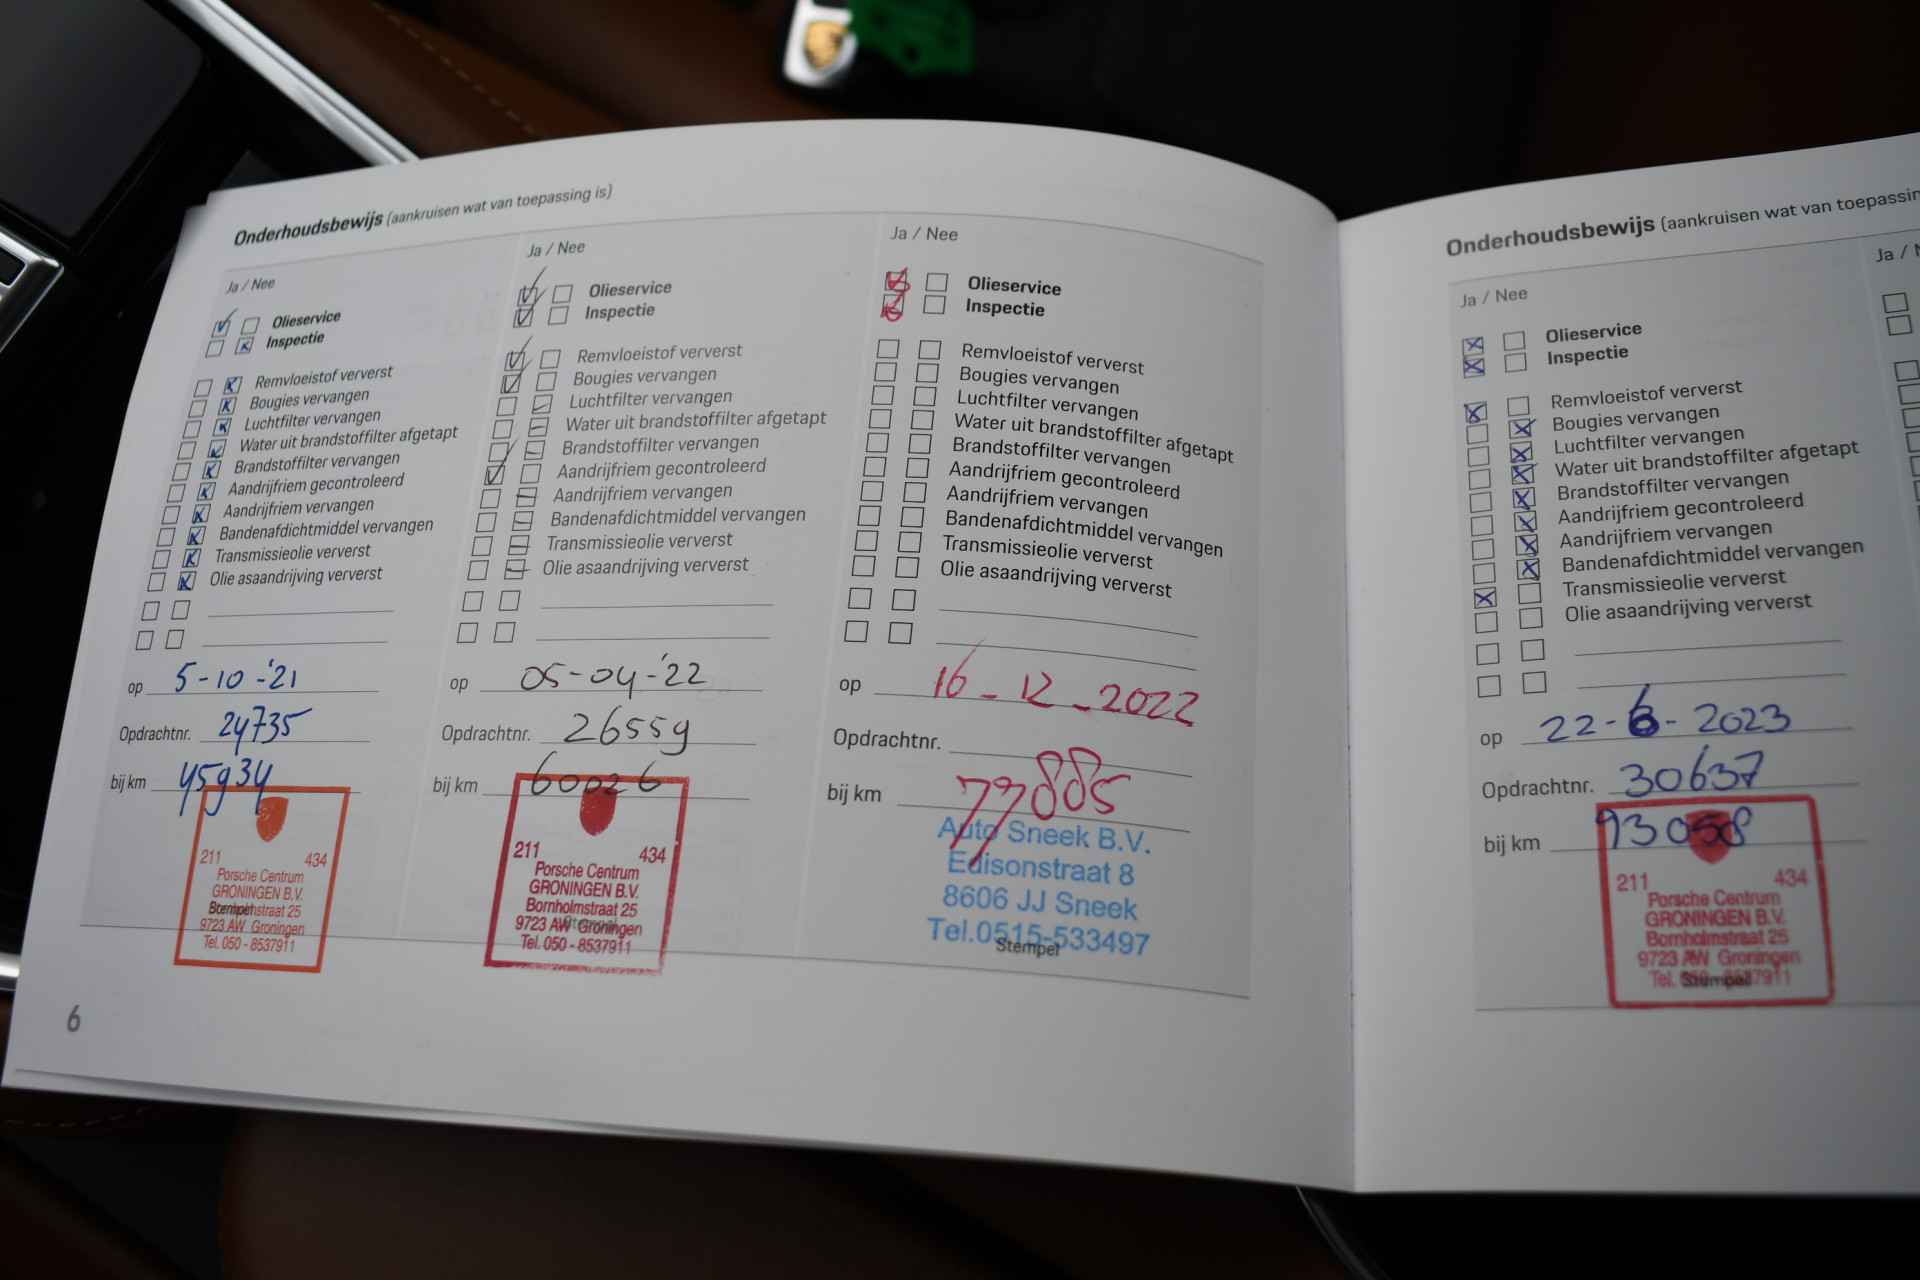 Onderhoudsbewijs (aankruisen wat van toepassing is)
Ja / Nee
Olieservice
Inspectie
Remvloeistof ververst
Bougies vervangen
Luchtfilter vervangen
Water uit brandstoffilter afgetapt
Brandstoffilter vervangen
Aandrijfriem gecontroleerd
Aandrijfriem vervangen
Bandenafdichtmiddel vervangen
Transmissieolie ververst
Olie asaandrijving ververst
op 5-10-'21
Opdrachtnr. 24735
bij km 45934
211 434
Porsche Centrum
GRONINGEN B.V.
Bornholmstraat 25
Stempel
9723 AW Groningen
Tel. 050 - 8537911
6
Ja / Nee
Olieservice
Inspectie
Remvloeistof ververst
Bougies vervangen
Luchtfilter vervangen
Water uit brandstoffilter afgetapt
Brandstoffilter vervangen
Aandrijfriem gecontroleerd
Aandrijfriem vervangen
Bandenafdichtmiddel vervangen
Transmissieolie ververst
Olie asaandrijving ververst
op 05-04-'22
Opdrachtnr. 26559
bij km 60026
211 434
Porsche Centrum
GRONINGEN B.V.
Bornholmstraat 25
9723 AW Groningen
Stempel
Tel. 050 - 8537911
Ja / Nee
Olieservice
Inspectie
Remvloeistof ververst
Bougies vervangen
Luchtfilter vervangen
Water uit brandstoffilter afgetapt
Brandstoffilter vervangen
Aandrijfriem gecontroleerd
Aandrijfriem vervangen
Bandenafdichtmiddel vervangen
Transmissieolie ververst
Olie asaandrijving ververst
op 16-12-2022
Opdrachtnr.
bij km 79885
Auto Sneek B.V.
Edisonstraat 8
8606 JJ Sneek
Tel.0515-533497
Stempel
Onderhoudsbewijs (aankruisen wat van toepassin
Ja / Nee
Olieservice
Inspectie
Remvloeistof ververst
Bougies vervangen
Luchtfilter vervangen
Water uit brandstoffilter afgetapt
Brandstoffilter vervangen
Aandrijfriem gecontroleerd
Aandrijfriem vervangen
Bandenafdichtmiddel vervangen
Transmissieolie ververst
Olie asaandrijving ververst
op 22-6-2023
Opdrachtnr. 30637
bij km 93058
211 434
Porsche Centrum
GRONINGEN B.V.
Bornholmstraat 25
9723 AW Groningen
Tel. 050 - 8537911
Stempel
Ja / N